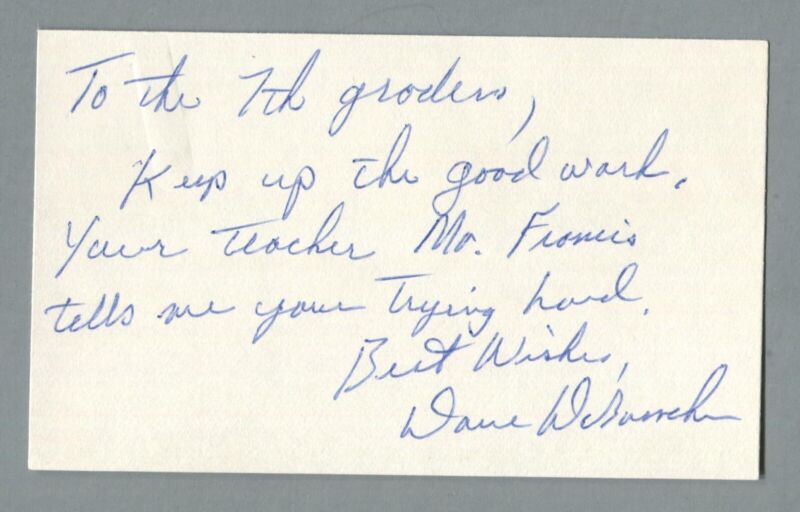 To the 7th graders,
Keep up the good work.
Your teacher Mr. Francis
tells me your trying hard.
Best Wishes,
Dave DeBusschere